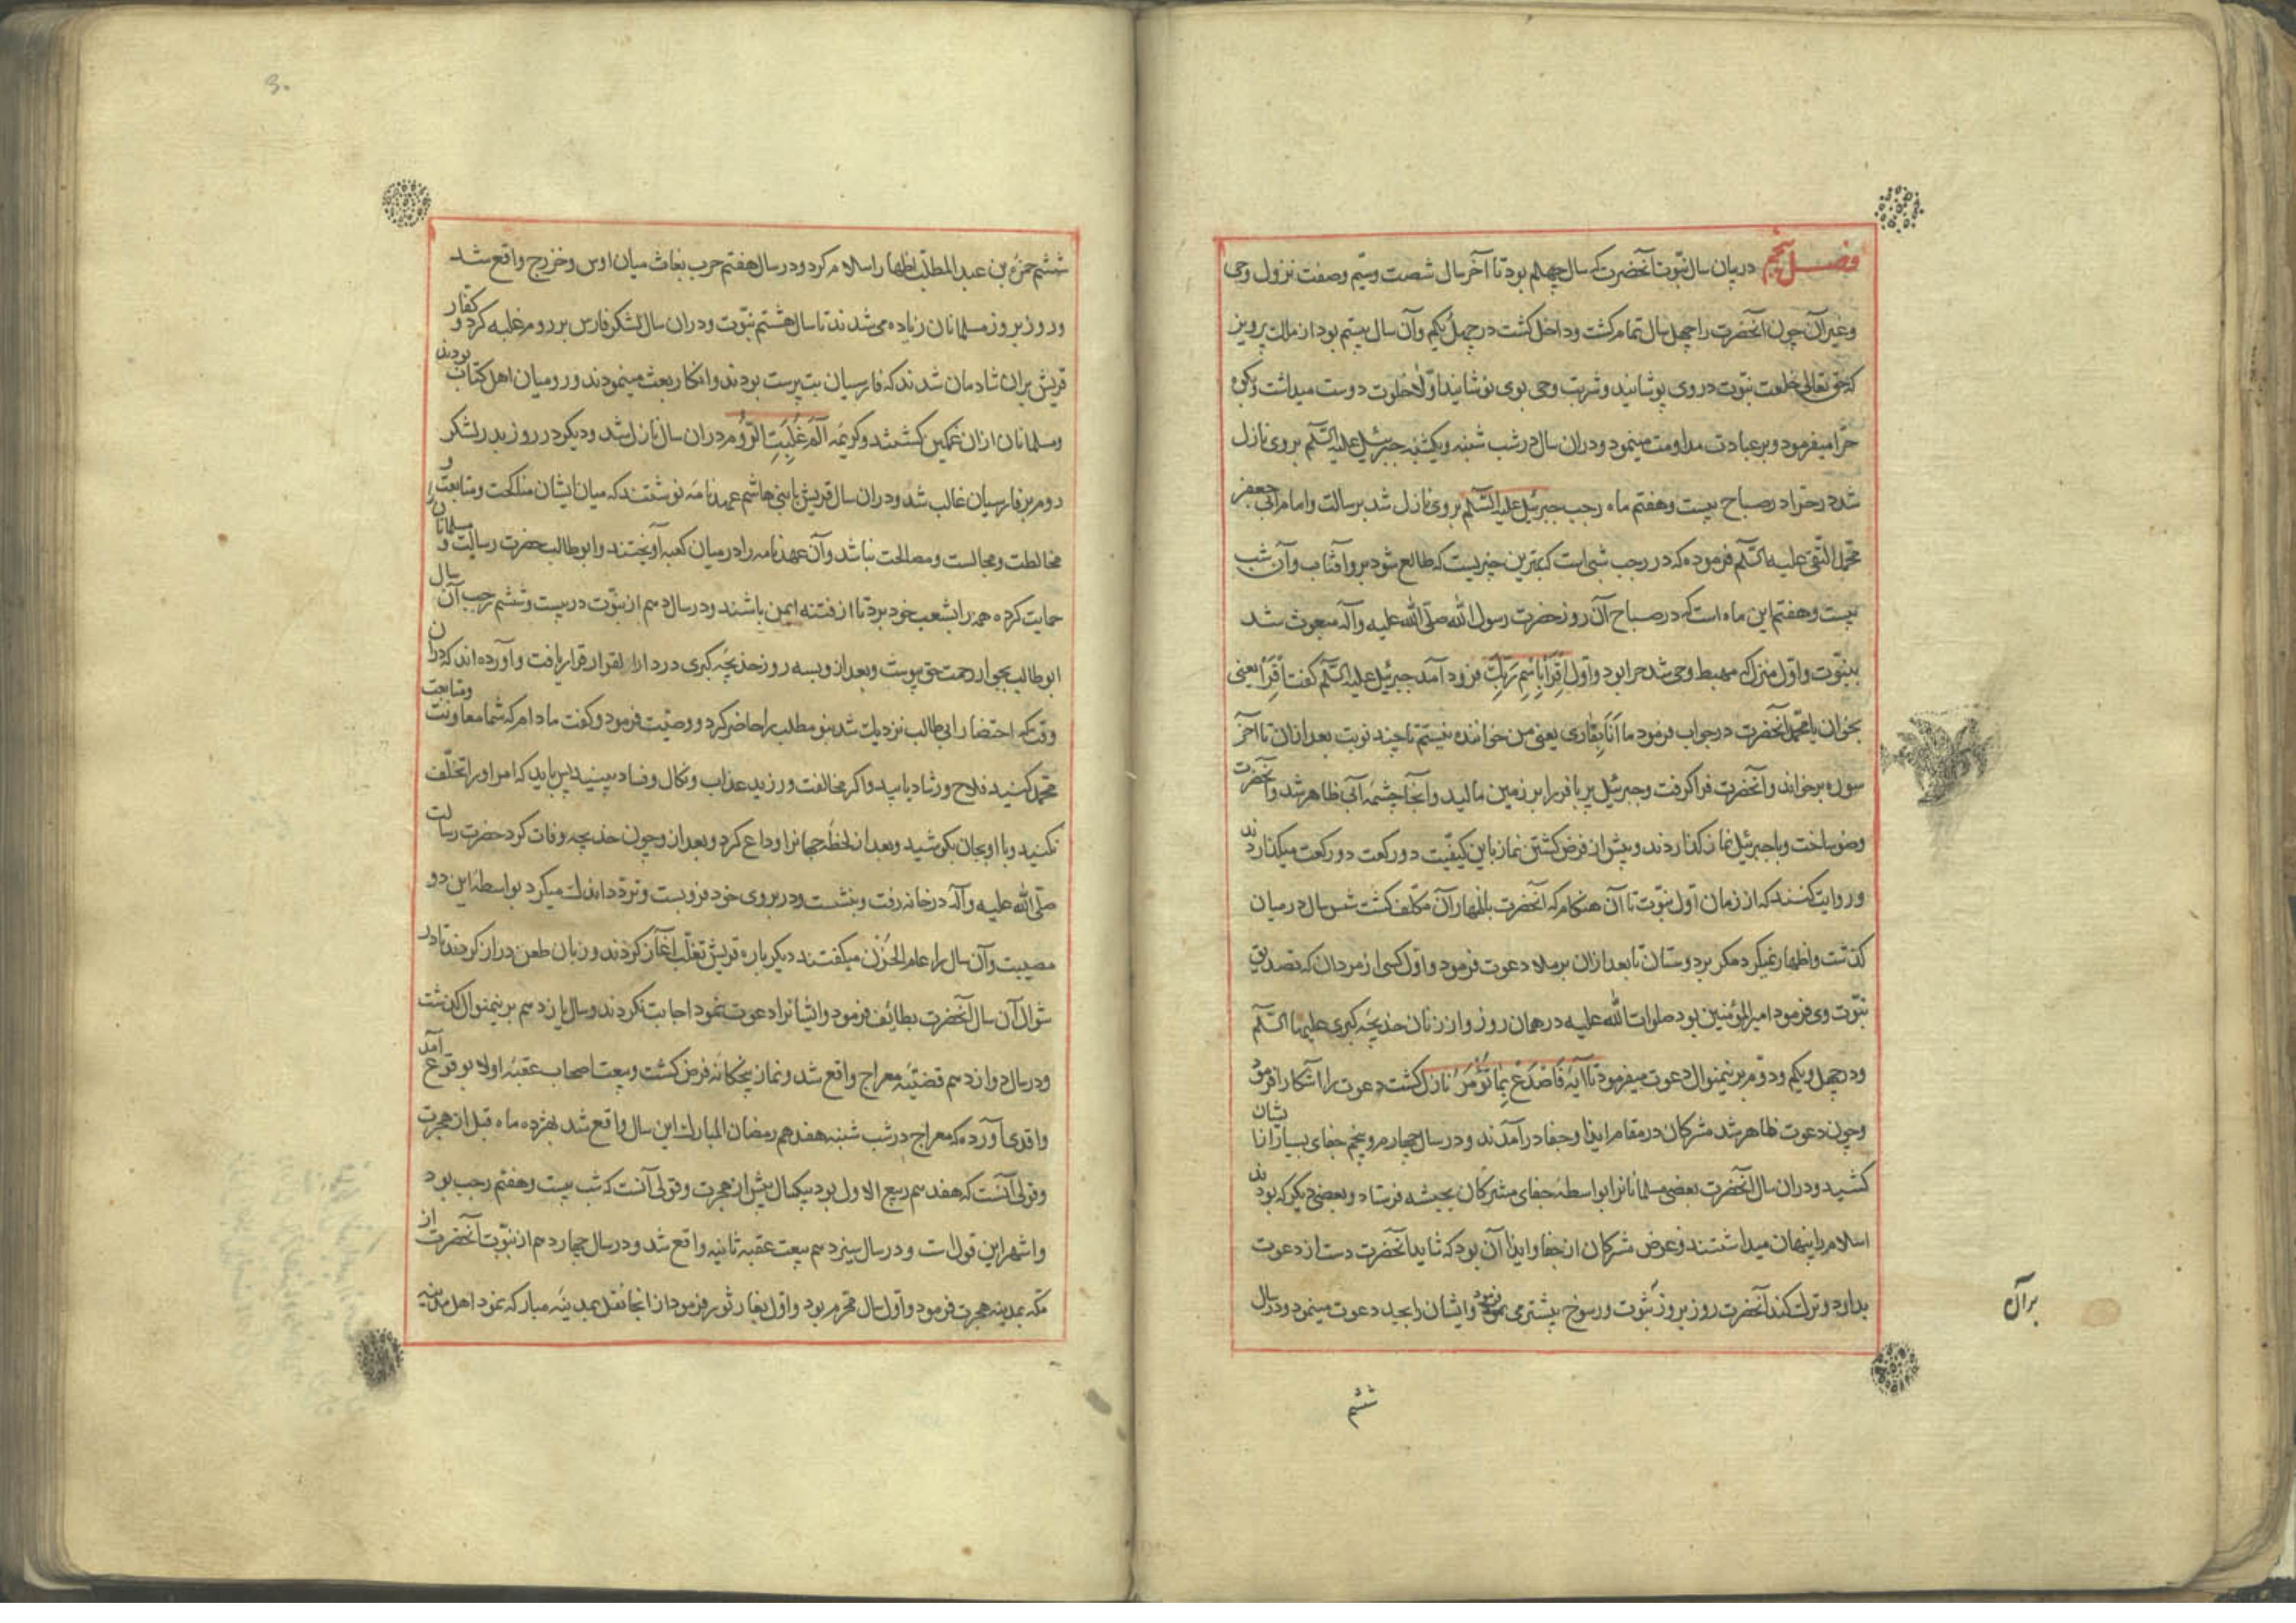 فصل پنجم در بیان سال نبوّت آنحضرت که سال چهلم بود تا آخر سال شصت و سیم و صفت نزول وحی
و غیر آن چون آنحضرت را چهل سال تمام گشت و داخل گشت در چهل یکم و آن سال بیستم بود از ملک پرویز
که حق تعالی خلعت نبوّت در وی پوشانید و شربت وحی بوی نوشانید اوّلا خلوت دوست میداشت و بکوه
حرّا میفرمود و بر عبادت مداومت مینمود و در آن سال در شب شنبه و یکشنبه جبرئیل علیه السّلم بر وی نازل
شد در حرّا در صباح بیست و هفتم ماه رجب جبرئیل علیه السّلم بر وی نازل شد برسالت و امام ابی جعفر
محمّد التّقی علیه السّلم فرموده که در رجب شبی است که بهترین چیزیست که طالع شود برو آفتاب و آن شب
بیست و هفتم این ماه است که در صباح آن روز حضرت رسول الله صلّی الله علیه و آله مبعوث شد
بنبوّت و اوّل منزل که مهبط وحی شد حرا بود و اوّل اِقْرَأْ بِاسْمِ رَبِّکَ فرود آمد جبرئیل علیه السّلم گفت اِقْرَأْ یعنی
بخوان یا محمّد آنحضرت در جواب فرمود ما اَنَا بِقاری یعنی من خواننده نیستم تا چند نوبت بعد از ان تا آخر
سوره برخواند و آنحضرت فرا گرفت و جبرئیل پر یا فر را بر زمین مالید و آنجا چشمه آبی ظاهر شد و آنحضرت
وضو ساخت و با جبرئیل نماز گذاردند و پیش از فرض گشتن نماز باین کیفیّت دو رکعت دو رکعت میگذاردند
و روایت کنند که از زمان اوّل نبوّت تا آن هنگام که آنحضرت باظهار آن مکلّف گشت شش سال در میان
گذشت و اظهار نمیکرد مگر بر دوستان تا بعد از ان بر ملا دعوت فرمود و اوّل کسی از مردان که تصدیق
نبوّت وی فرمود امیر المؤمنین بود صلوات الله علیه در همان روز و از زنان خدیجه کبری علیها السّلم
و در چهل و یکم و دوّم برینمنوال دعوت میفرمود تا آیه فَاصْدَعْ بِمَا تُؤْمَرُ نازل گشت دعوت را آشکارا فرمود
و چون دعوت ظاهر شد مشرکان در مقام ایذا و جفا در آمدند و در سال چهارم و پنجم جفای بسیار از ایشان
کشید و در ان سال آنحضرت بعضی مسلمانانرا بواسطه جفای مشرکان بحبشه فرستاد و بعضی دیگر که بودند
اسلام را پنهان میداشتند و غرض مشرکان از جفا و ایذا آن بود که شاید آنحضرت دست از دعوت
بدارد و ترک کند آنحضرت روز بروز ثبوت و رسوخ بیشتر می فزود و ایشان را بجد دعوت مینمود و در سال
برآن
ششم
ششم حمزة بن عبد المطلّب اظهار اسلام کرد و در سال هفتم حرب بغاث میان اوس و خزرج واقع شد
و روز بروز مسلمانان زیاده می شدند تا سال هشتم نبوّت و در ان سال لشکر فارس بر روم غلبه کرد و کفار
قریش بران شادمان شدند که فارسیان بت پرست بودند و انکار بعث مینمودند و رومیان اهل کتاب بودند
و مسلمانان از ان غمکین کشتند و کریمه الٓمٓ غُلِبَتِ الرُّومُ در ان سال نازل شد و دیگر در روز بدر لشکر
روم بر فارسیان غالب شد و در ان سال قریش با بنی هاشم عهدنامه نوشتند که میان ایشان مناکحت و متابعت و
مخالطت و مجالست و مصالحت نباشد و آن عهدنامه را در میان کعبه آویختند و ابو طالب حضرت رسالت و مسلمانان را
حمایت کرده همه را بشعب خود برد تا از فتنه ایمن باشند و در سال دهم از نبوّت در بیست و ششم رجب آن سال
ابو طالب بجوار رحمت حق پیوست و بعد از و بسه روز خدیجه کبری در دار القرار قرار یافت و آورده اند که در آن
وقت که احتضار ابی طالب نزدیک شد بنو مطلب را حاضر کرد و وصیّت فرمود و گفت مادام که شما معاونت و متابعت
محمّد کنید فلاح و رشاد یابید و اگر مخالفت ورزید عذاب و نکال و فساد بینید پس باید که امر او را تخلّف
نکنید و با او بجان بکوشید و بعد از لحظه جهانرا وداع کرد و بعد از و چون خدیجه وفات کرد حضرت رسالت
صلّی الله علیه و آله در خانه رفت و بنشست و در بروی خود فرو بست و تردّد اندک میکرد بواسطه این دو
مصیبت و آن سال را عام الحُزْن میگفتند دیگر باره قریش تغلّب آغاز کردند و زبان طعن دراز کردند تا در
شوال آن سال آنحضرت بطائف فرمود و ایشانرا دعوت نمود اجابت نکردند و سال یازدهم برینمنوال گذشت
و در سال دوازدهم قضیّه معراج واقع شد و نماز پنجکانه فرض کشت و بیعت اصحاب عقبه اولا بوقوع آمد
واقدی آورده که معراج در شب شنبه هفدهم رمضان المبارک این سال واقع شد بهژده ماه قبل از هجرت
و قولی آنست که هفدهم ربیع الاول بود بیکسال پیش از هجرت و قولی آنست که شب بیست و هفتم رجب بود
و اشهر این قول است و در سال سیزدهم بیعت عقبه ثانیه واقع شد و در سال چهاردهم از نبوّت آنحضرت از
مکّه بمدینه هجرت فرمود و اوّل سال محرم بود و اوّل بغار ثور فرمود از انجا نقل بمدینه مبارکه نمود اهل مدینه